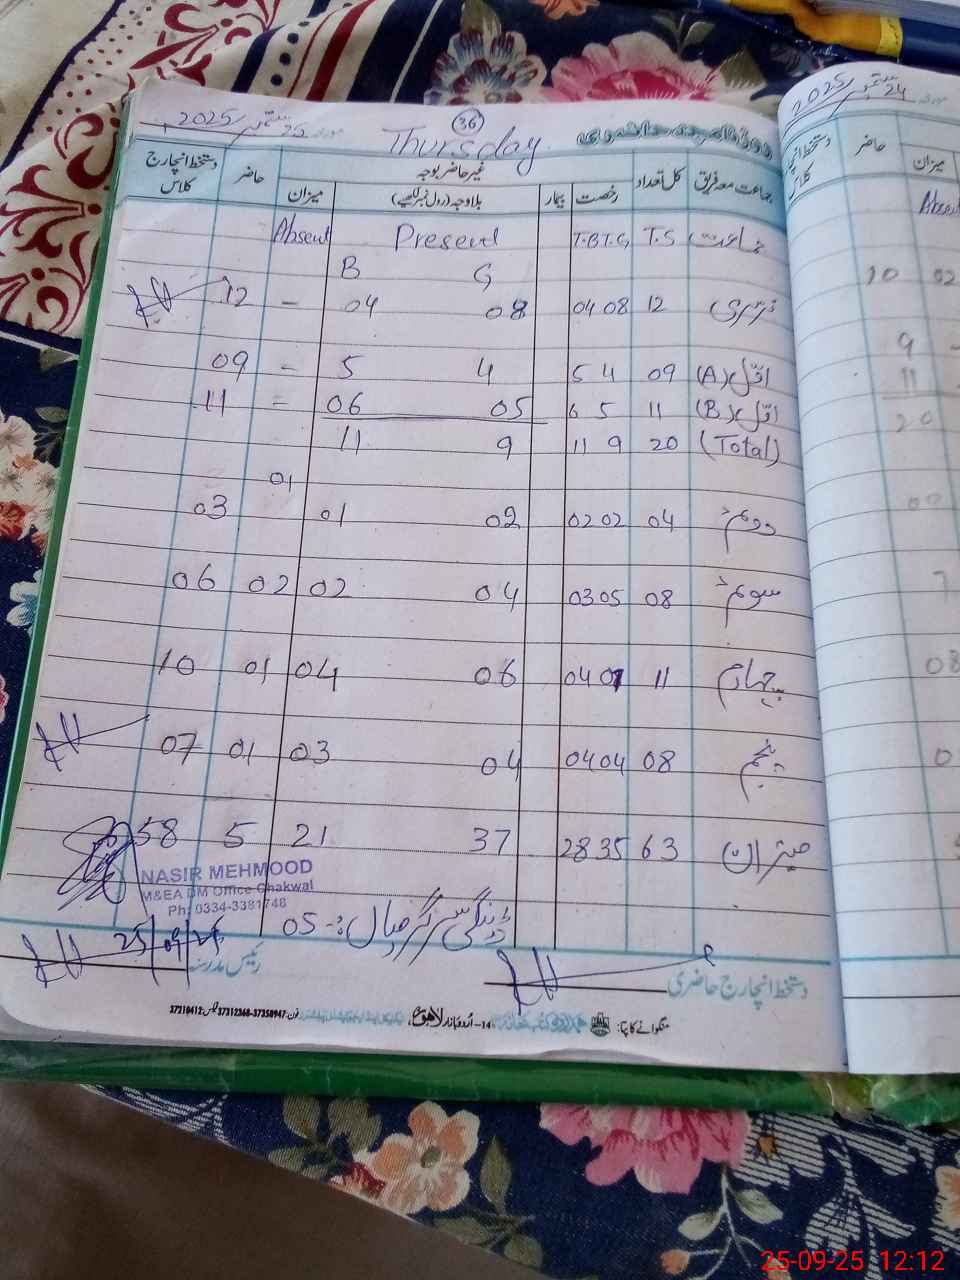 36
مورخہ 25 ستمبر 2025
Thursday
روزنامچہ حاضری
جماعت معہ فریق کل تعداد رخصت بیمار غیر حاضر بوجہ میزان حاضر دستخط انچارج کلاس
بلاوجہ (رول نمبر لکھیے)
جماعت T.S T.B T.G Present Absent
G B
نرسری 12 08 04 08 04 - 12
اوّل (A) 09 4 5 4 5 - 09
اوّل (B) 11 5 6 05 06 - 11
(Total) 20 9 11 9 11
دوم 04 02 02 02 01 01 03
سوم 08 05 03 04 02 02 06
چہارم 11 07 04 06 04 01 10
پنجم 08 04 04 04 03 01 07
میزان 63 35 28 37 21 5 58
NASIR MEHMOOD
M&EA DM Office Chakwal
Ph: 0334-3381748
ڈینگی سرگرمیاں :- 05
25/09/25
دستخط انچارج حاضری
رئیس مدرسہ
منگوانے کا پتا:
14- اُردو بازار لاہور
فون: 37358947-37312368 فیکس: 37210412
مورخہ 24 ستمبر 2025
دستخط انچارج کلاس
حاضر
میزان
Absent
10 02
9 -
11
20
00
7
08
0
25-09-25 12:12